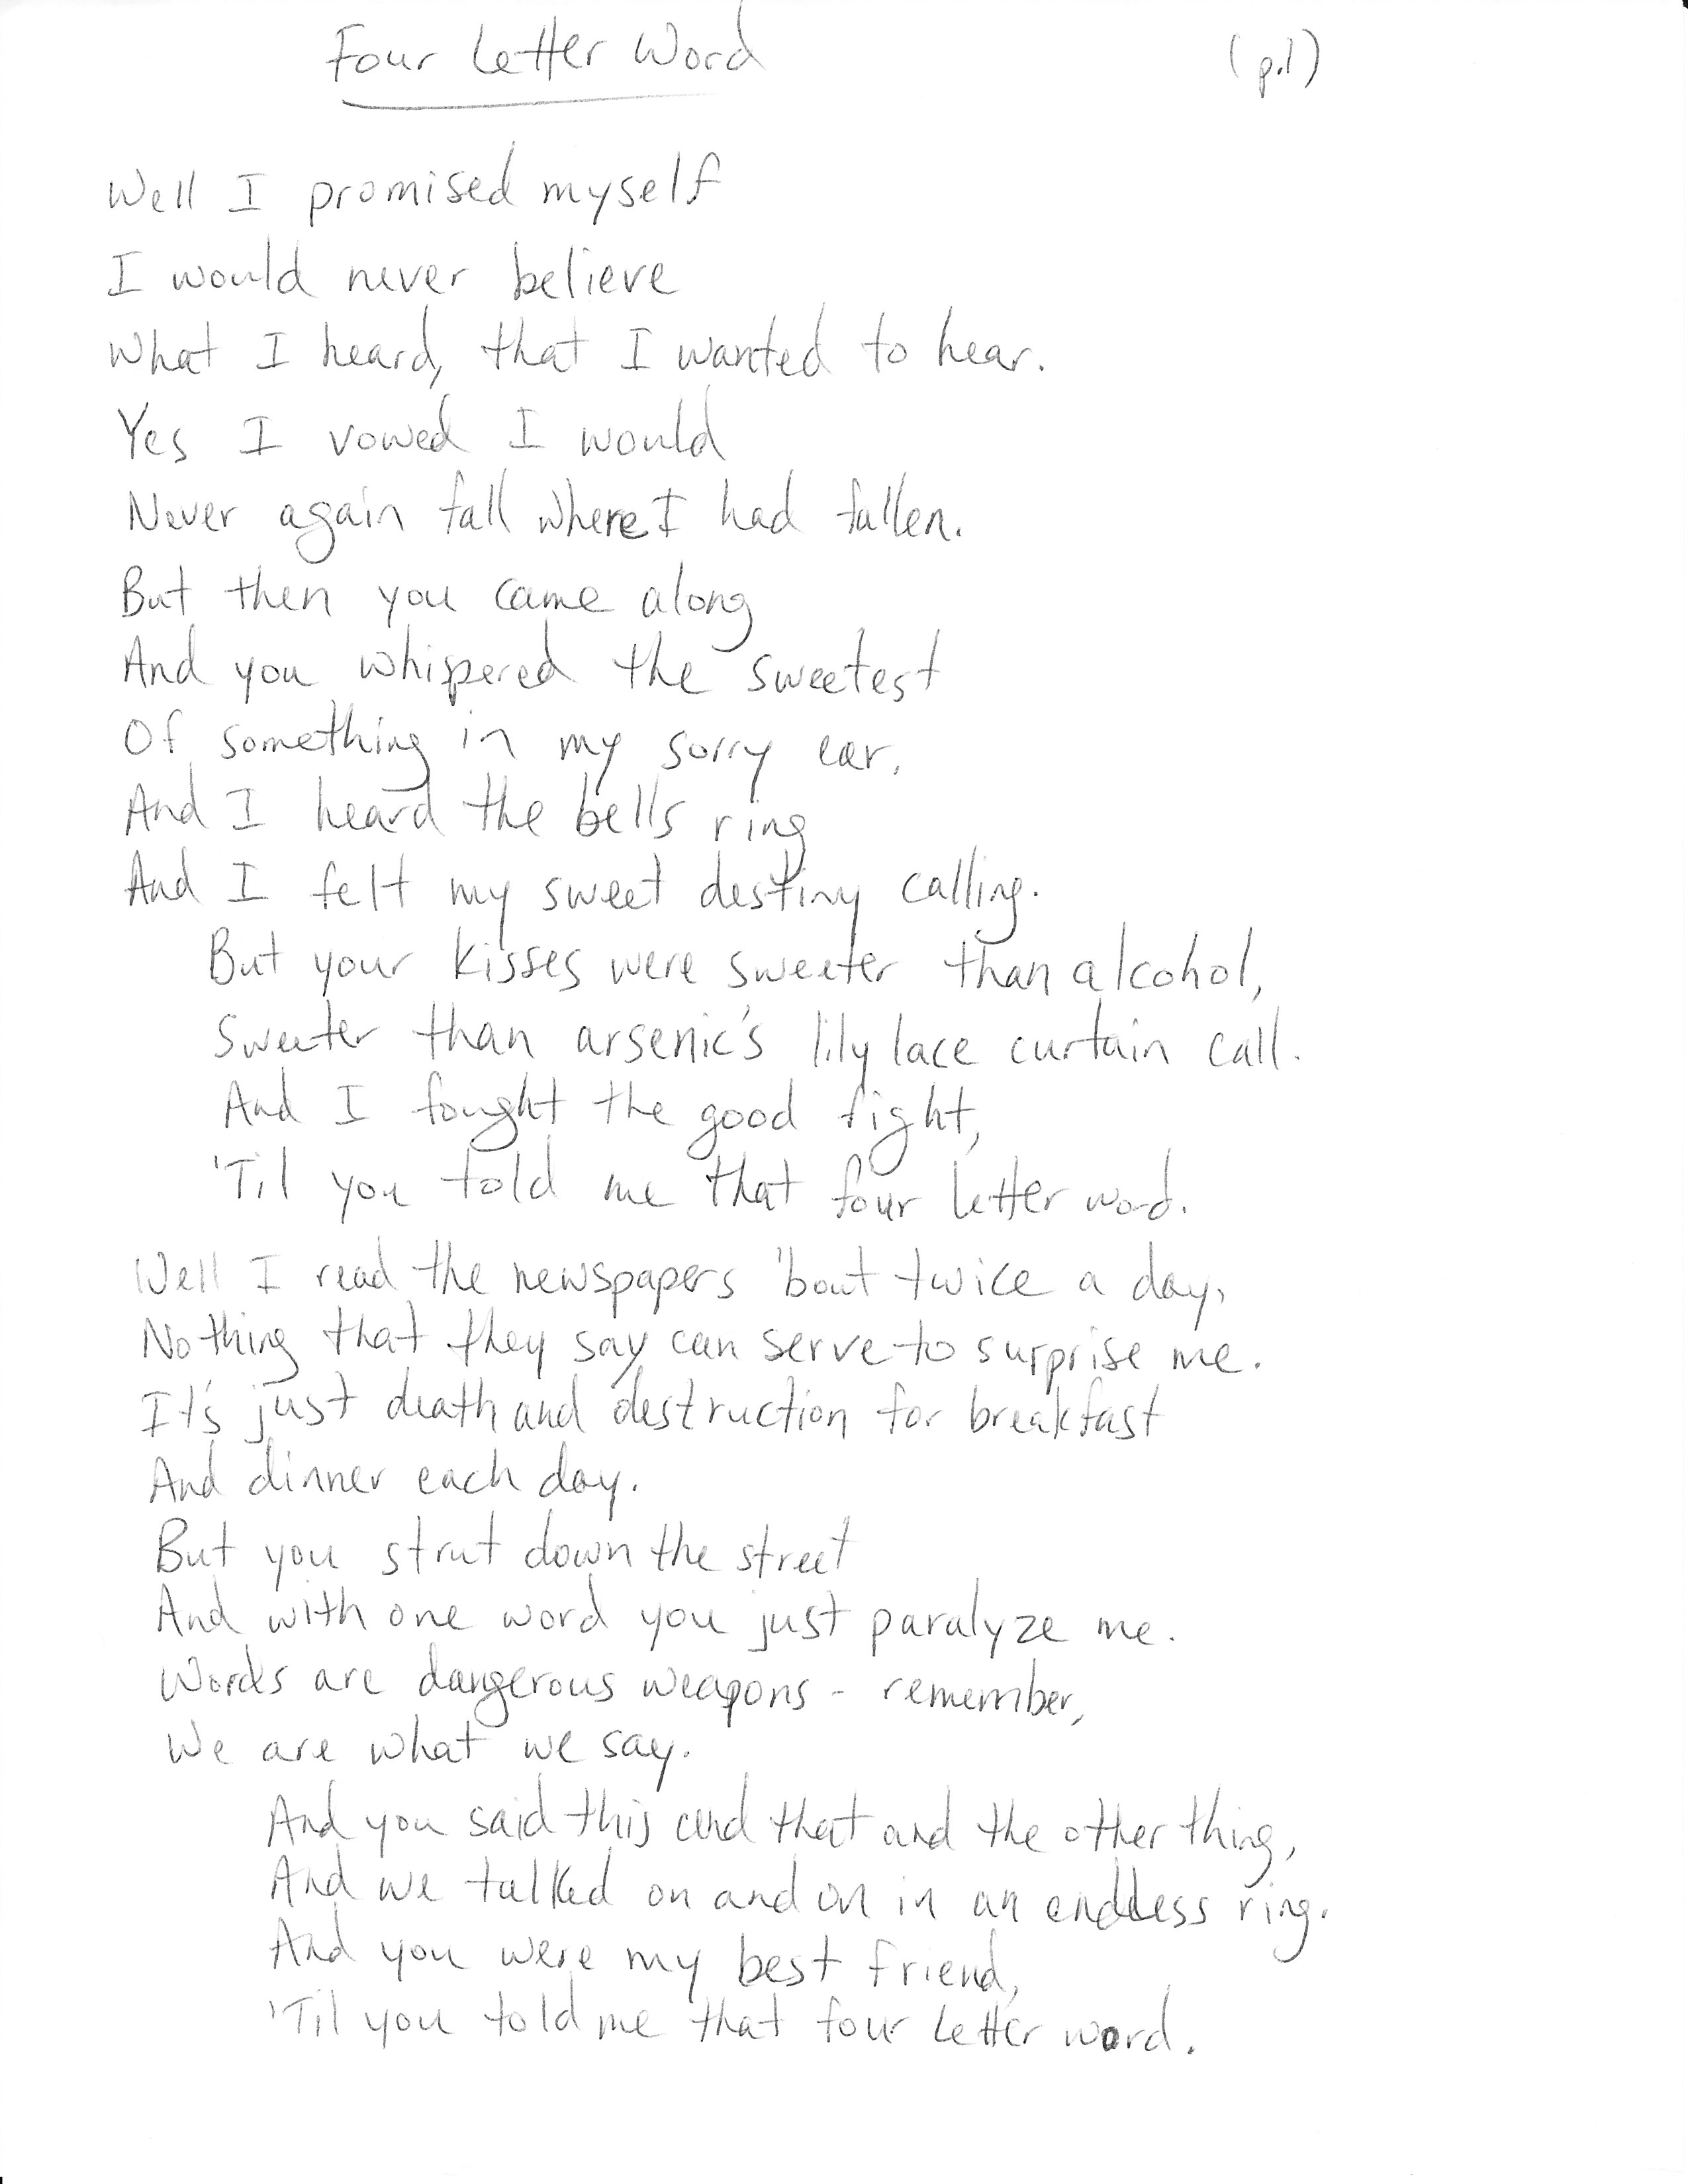 Four Letter Word (p.1)
Well I promised myself
I would never believe
What I heard, that I wanted to hear.
Yes I vowed I would
Never again fall where I had fallen.
But then you came along
And you whispered the sweetest
Of something in my sorry ear,
And I heard the bells ring
And I felt my sweet destiny calling.
But your kisses were sweeter than alcohol,
Sweeter than arsenic's lily lace curtain call.
And I fought the good fight,
'Til you told me that four letter word.
Well I read the newspapers 'bout twice a day,
Nothing that they say can serve to surprise me.
It's just death and destruction for breakfast
And dinner each day.
But you strut down the street
And with one word you just paralyze me.
Words are dangerous weapons - remember,
We are what we say.
And you said this and that and the other thing,
And we talked on and on in an endless ring.
And you were my best friend,
'Til you told me that four letter word.